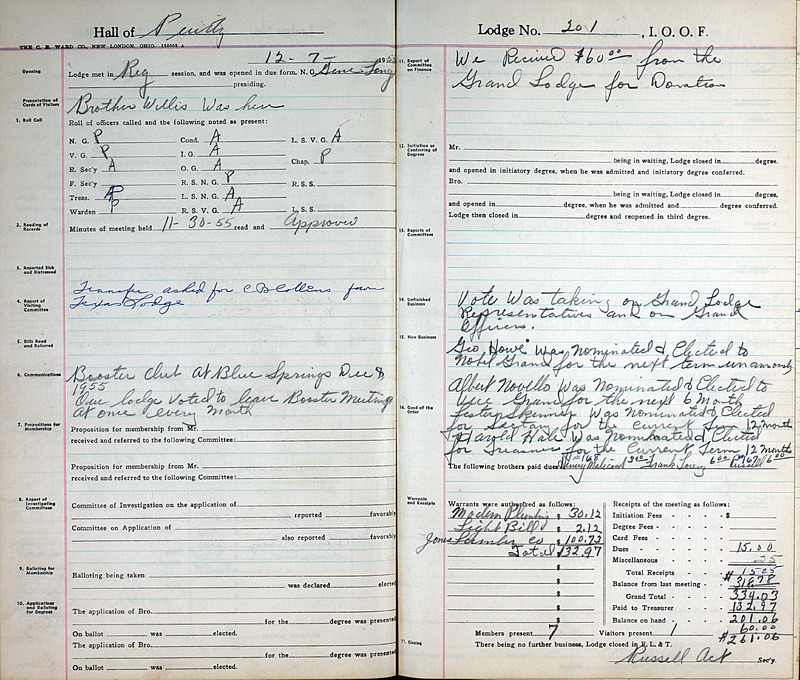 Hall of Purity
THE C. E. WARD CO., NEW LONDON, OHIO.
12-7- 1955
Opening
Lodge met in Reg session, and was opened in due form, N. G. Gene Long
presiding.
Presentation of Cards of Visitors
Brother Willis Was here
1. Roll Call
Roll of officers called and the following noted as present:
N. G. P Cond. A L. S. V. G. A
V. G. P I. G. A Chap. P
R. Sec'y A O. G. A
F. Sec'y R. S. N. G. P R. S. S.
Treas. P L. S. N. G. A
Warden P R. S. V. G. A L. S. S.
2. Reading of Records
Minutes of meeting held 11-30-55 read and Approved
3. Reported Sick and Distressed
4. Report of Visiting Committee
Transfer asked for C B Collens from
Texas Lodge
5. Bills Read and Referred
6. Communications
Booster Club At Blue Springs Dec 8
1955
Our lodge voted to leave Booster Meeting
At once every Month
7. Propositions for Membership
Proposition for membership from Mr.
received and referred to the following Committee:
Proposition for membership from Mr.
received and referred to the following Committee:
8. Report of Investigating Committees
Committee of Investigation on the application of
reported favorably
Committee on Application of
also reported favorably
9. Balloting for Membership
Balloting being taken
was declared elected
10. Applications and Balloting for Degrees
The application of Bro.
for the degree was presented
On ballot was elected.
The application of Bro.
for the degree was presented
On ballot was elected.
Lodge No. 201, I. O. O. F.
11. Report of Committee on Finance
We Recived $60.00 from the
Grand Lodge for Donation
12. Initiation or Conferring of Degrees
Mr.
being in waiting, Lodge closed in degree,
and opened in initiatory degree, when he was admitted and initiatory degree conferred.
Bro.
being in waiting, Lodge closed in degree,
and opened in degree, when he was admitted and degree conferred.
Lodge then closed in degree and reopened in third degree.
13. Reports of Committees
14. Unfinished Business
Vote Was taking on Grand Lodge
Representatives and on Grand
Officers.
15. New Business
Geo Howe Was Nominated & Elected to
Nobel Grand for the next term unamously
Albert Novello Was Nominated & Elected to
Vice Grand for the next 6 Month
16. Good of the Order
Lester Skinner Was Nominated & Elected
for Sectary for the Current Term 12 month
Harold Hale Was Nominated & Elected
for Treasurer for the Current Term 12 Months
The following brothers paid dues Frank Long 6.00 Russell 6.00
Warrants and Receipts
Warrants were authorized as follows:
Modern Plumbing $ 30.12
Light Bill $ 2.12
Jones Lumber Co $ 100.73
Total 132.97
Receipts of the meeting as follows:
Initiation Fees $
Degree Fees
Card Fees
Dues 15.00
Miscellaneous 25
Total Receipts 15.25
Balance from last meeting $318.78
Grand Total 334.03
Paid to Treasurer 132.97
Balance on hand 201.06
60.00
$261.06
Members present 7 Visitors present 1
17. Closing
There being no further business, Lodge closed in F., L. & T.
Russell Act Sec'y